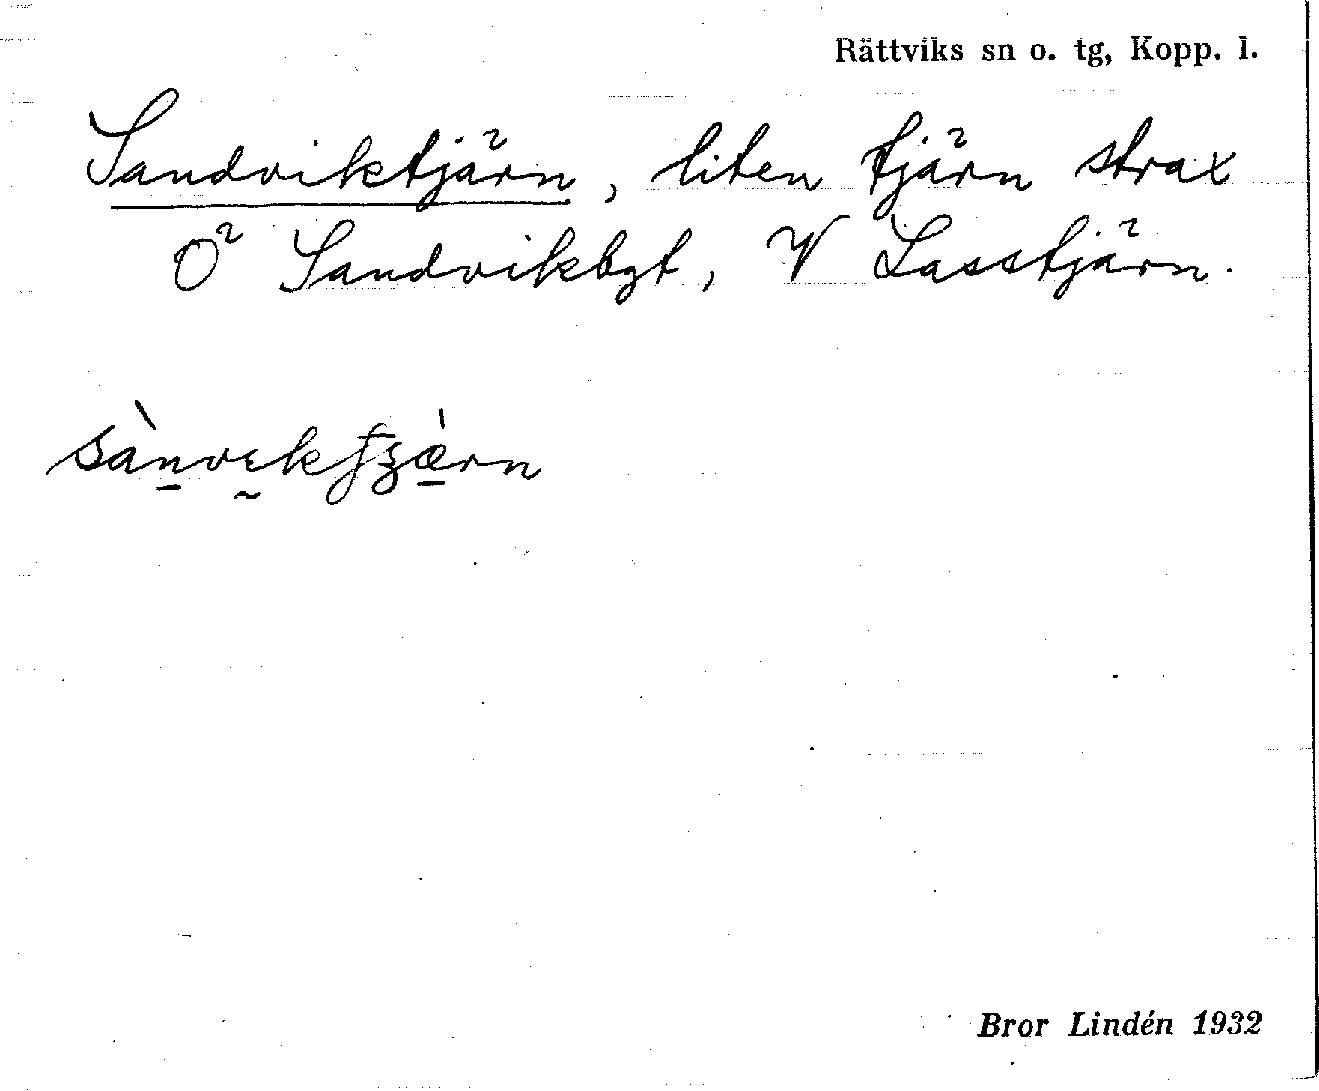 Rättviks sn o. tg, Kopp. l.
Sandviktjärn, liten tjärn strax
Ö Sandvikbyt, V Lasstjärn.
Bror Lindén 1932